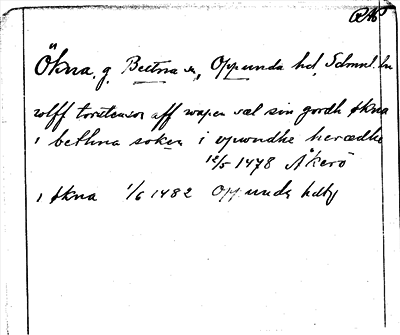 Ökna, g. Bettna sn, Oppunda hd, Sdmnl. ln
rolff torstenson aff wapen sæl sin gordh økna
i bethna soken i opwndhe herædhe
12/5 1478 Åkerö
i økna 1/6 1482 Oppunda hdtg